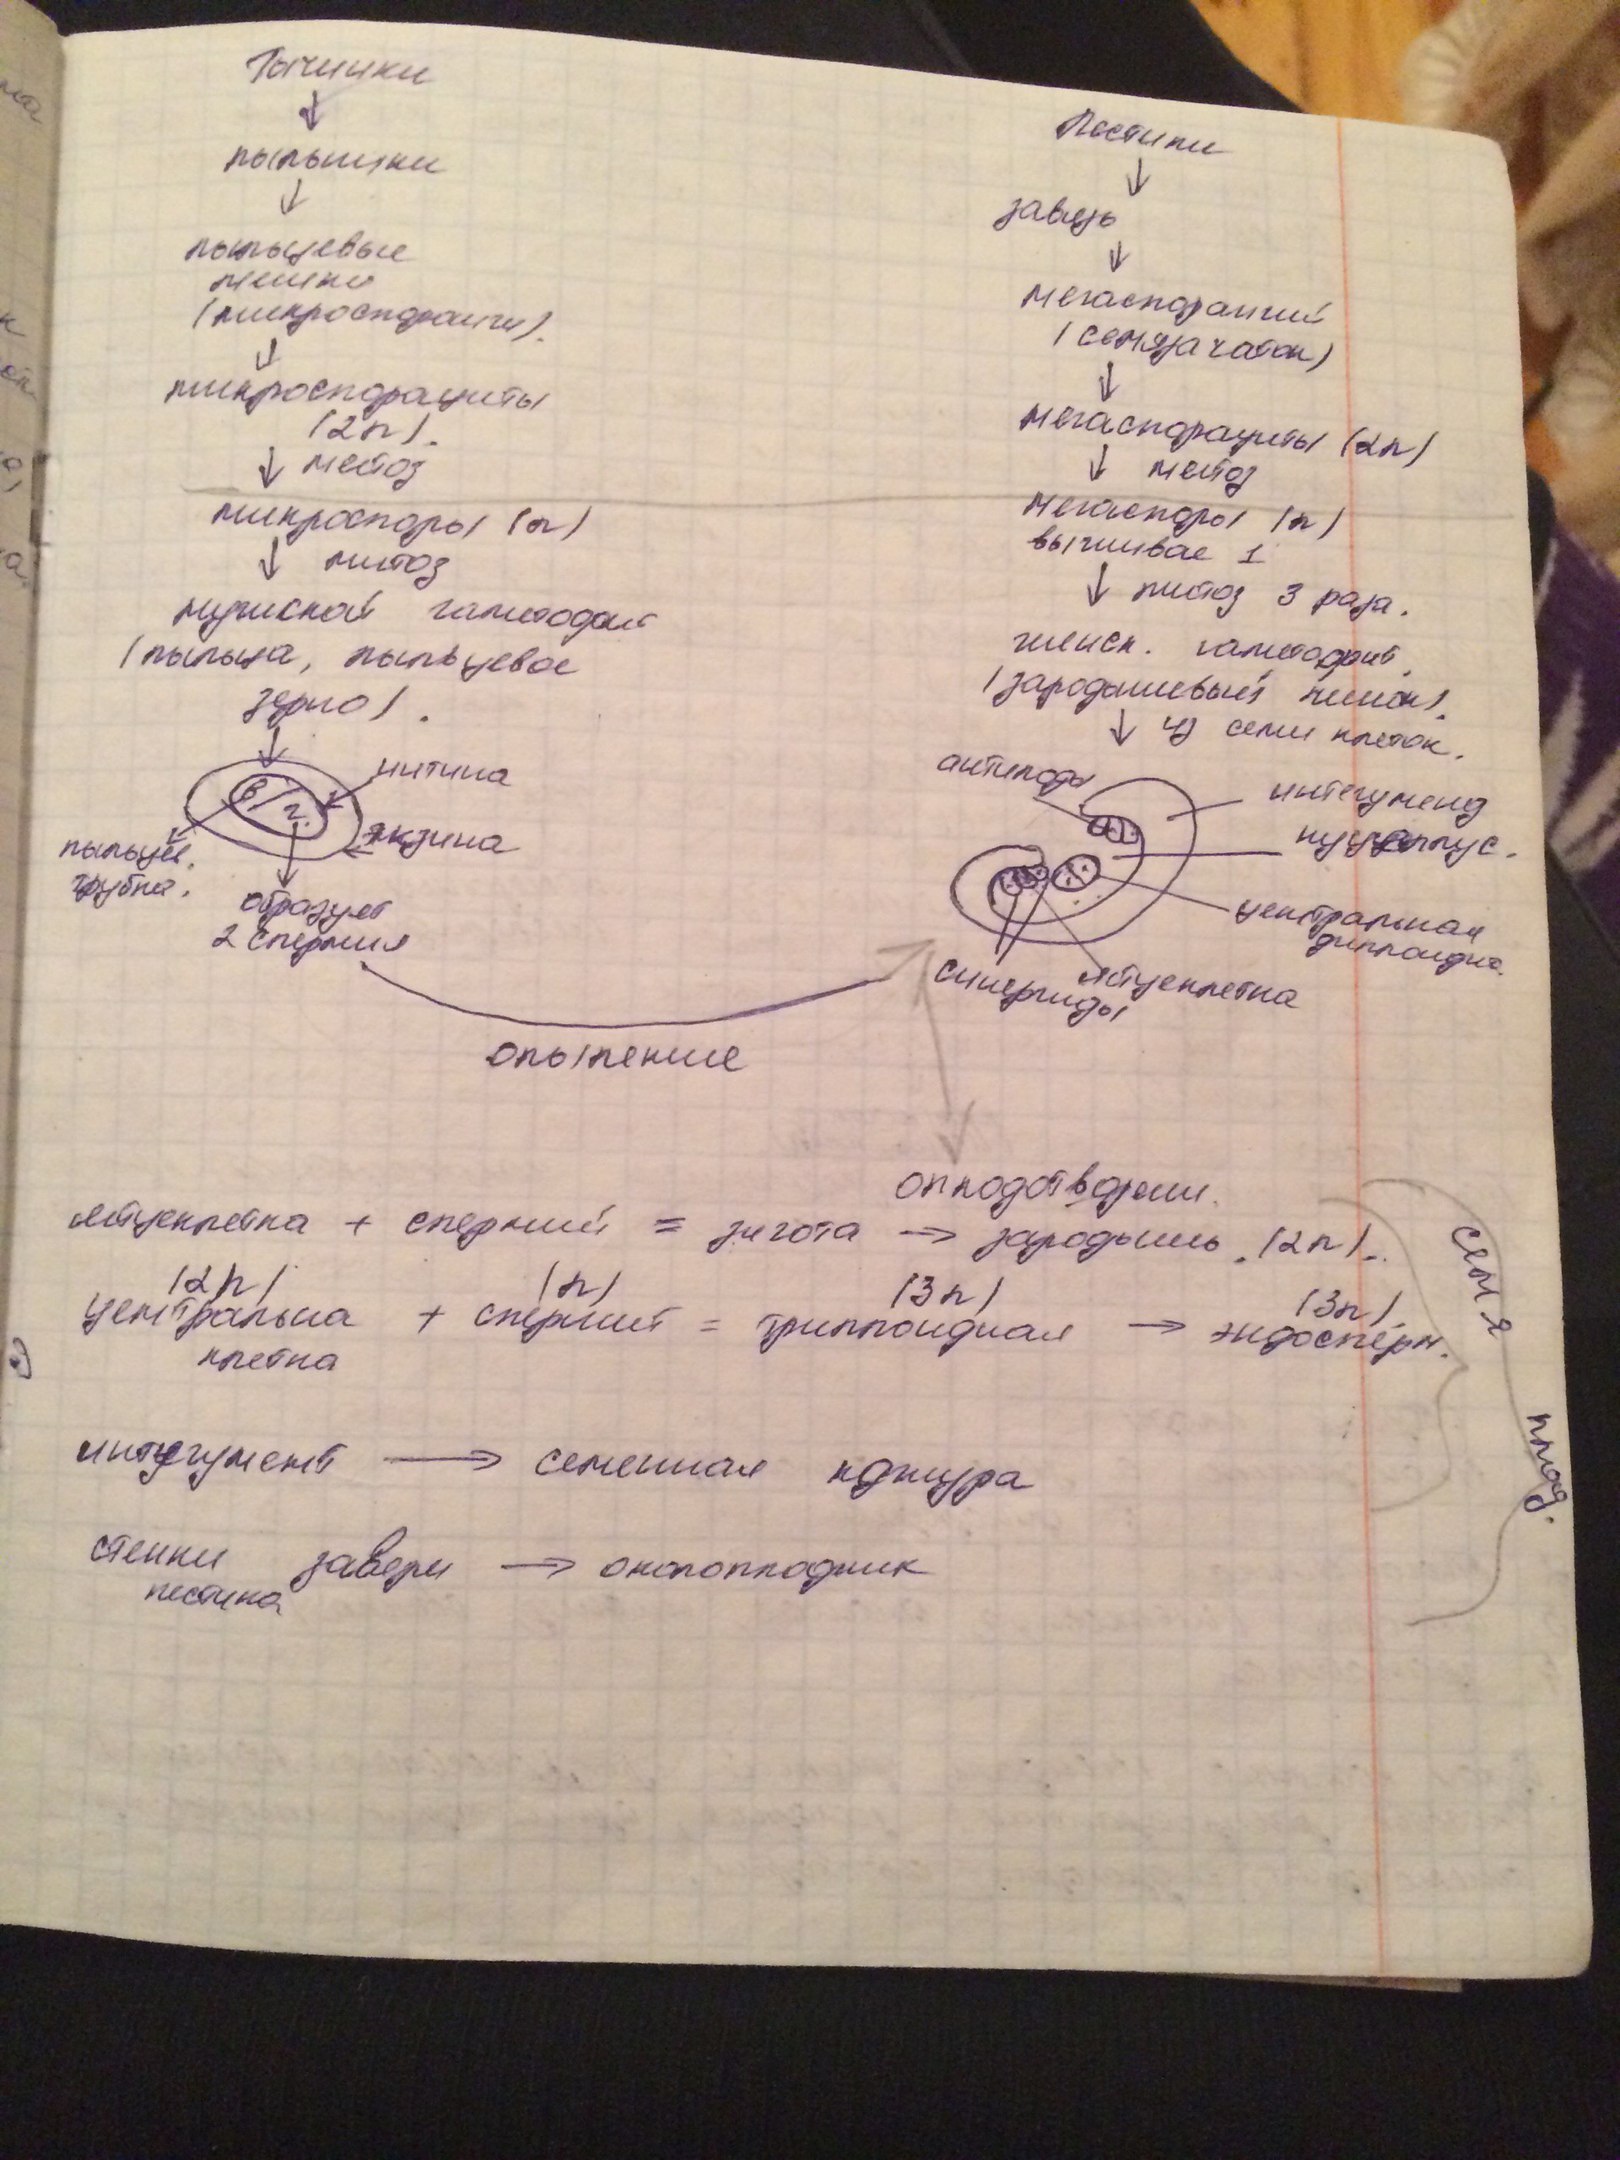 Тычинки
↓
пыльники
↓
пыльцевые
мешки
(микроспорангии).
↓
микроспороциты
(2n).
↓ мейоз
микроспоры (n)
↓ митоз
мужской гаметофит
(пыльца, пыльцевое
зерно).
↓
интина
в
г
экзина
пыльцев.
трубка.
образует
2 спермия
Пестики
↓
завязь
↓
мегаспорангий
(семязачаток)
↓
мегаспороциты (2n)
↓ мейоз
мегаспоры (n)
↓ митоз 3 раза.
женск. гаметофит.
(зародышевый мешок).
↓ из семи клеток.
антиподы
интегумент
нуцеллус.
центральная
диплоидна.
синергиды
яйцеклетка
опыление
оплодотворени.
яйцеклетка + спермий = зигота → зародышь. (2n).
(2n) (n) (3n) (3n)
центральна + спермий = триплоидная → эндосперм.
клетка
интегумент → семенная кожура
стенки завязи → околоплодник
пестика
семя
плод.